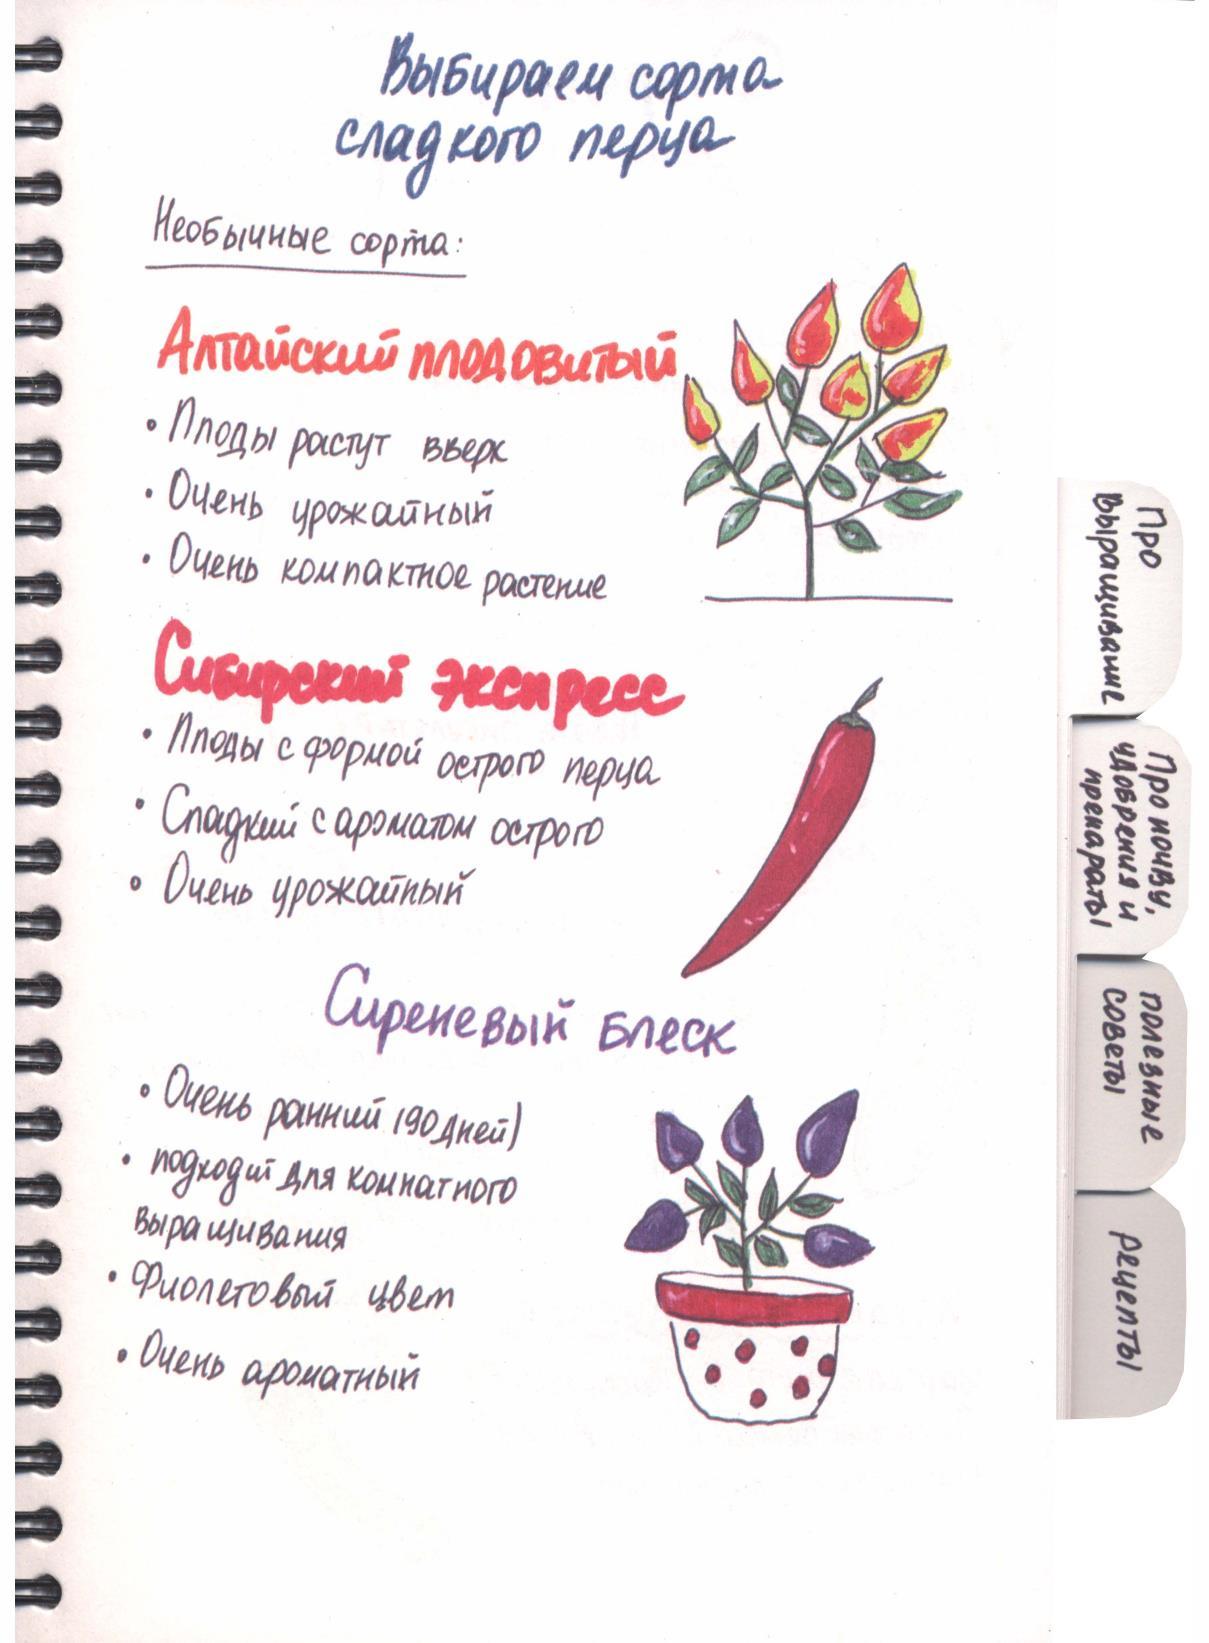 Выбираем сорта
сладкого перца
Необычные сорта:
Алтайский плодовитый
• Плоды растут вверх
• Очень урожайный
• Очень компактное растение
Сибирский экспресс
• Плоды с формой острого перца
• Сладкий с ароматом острого
• Очень урожайный
Сиреневый блеск
• Очень ранний (90 дней)
• подходит для комнатного
выращивания
• Фиолетовый цвет
• Очень ароматный
Про
выращивание
Про почву,
удобрения и
препараты
полезные
советы
рецепты